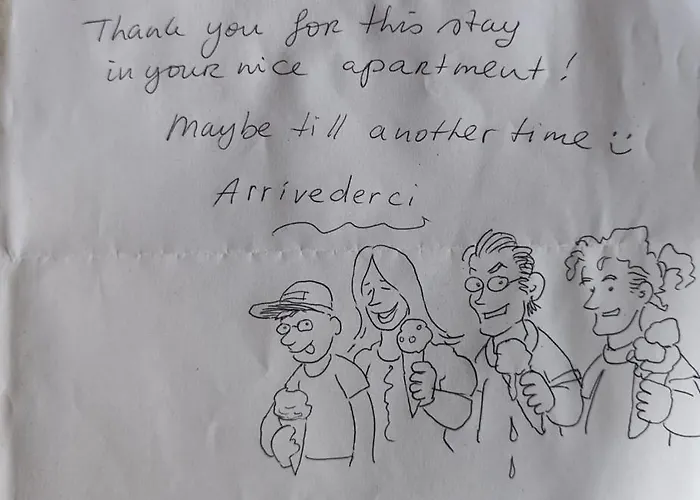 Thank you for this stay
in your nice apartment!
Maybe till another time :)
Arrivederci